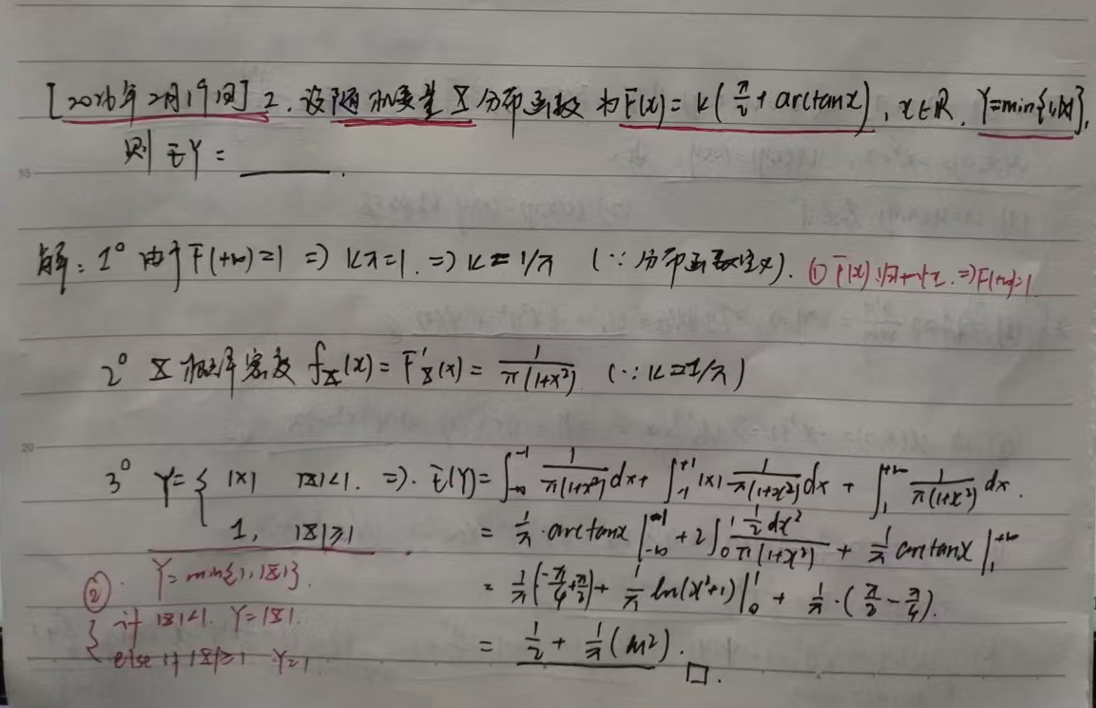 [2026年2月19日] 2. 设随机变量 X 分布函数为 F(x) = k(π/2 + arctanx), x∈R. Y=min{1,|X|},
则 EY = ______.
解: 1° 由于 F(+∞)=1 => kπ=1. => k = 1/π (∵ 分布函数定义). ① F(x) => F(+∞)=1.
2° X 概率密度 f_X(x) = F'_X(x) = 1/(π(1+x²)) (∵ k=1/π)
3° Y = { |X| |X|<1. =>. E(Y) = ∫_{-∞}^{-1} 1/(π(1+x²)) dx + ∫_{-1}^{+1} |x| 1/(π(1+x²)) dx + ∫_1^{+∞} 1/(π(1+x²)) dx.
1, |X|≥1 = 1/π · arctanx |_{-∞}^{-1} + 2∫_0^1 (1/2 dx²)/(π(1+x²)) + 1/π arctanx |_1^{+∞}
② Y = min{1,|X|}. = 1/π(-π/4+π/2) + 1/π ln(x²+1)|_0^1 + 1/π·(π/2 - π/4).
{ if |X|<1. Y=|X|.
else if |X|≥1 Y=1 = 1/2 + 1/π (ln2). □.